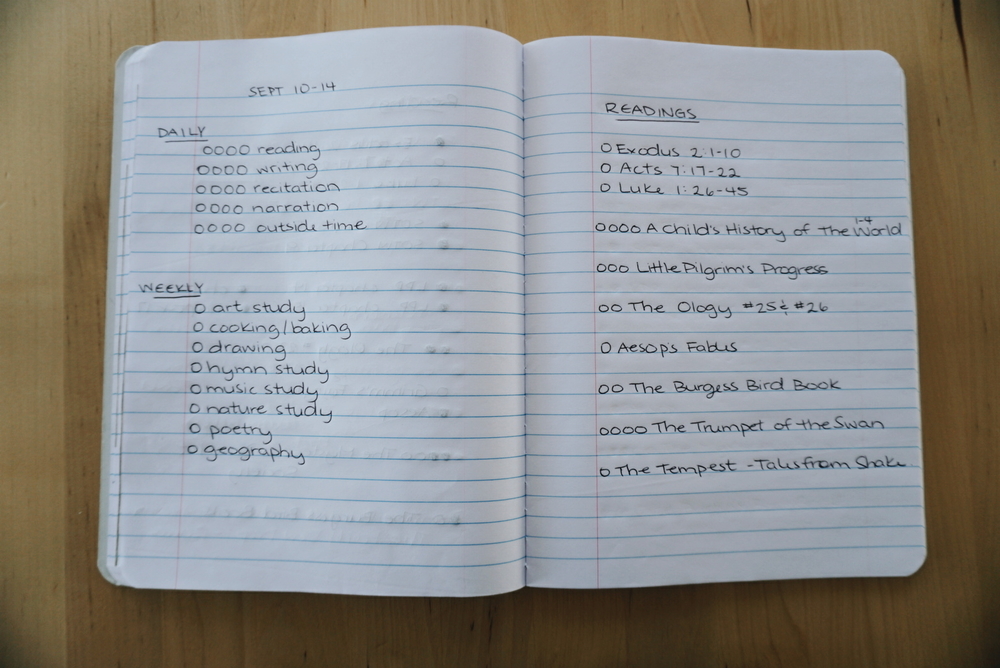 SEPT 10-14
DAILY
OOOO reading
OOOO writing
OOOO recitation
OOOO narration
OOOO outside time
WEEKLY
O art study
O cooking/baking
O drawing
O hymn study
O music study
O nature study
O poetry
O geography
READINGS
O Exodus 2:1-10
O Acts 7:17-22
O Luke 1:26-45
1-4
OOOO A Child's History of The World
OOO Little Pilgrim's Progress
OO The Ology #25 & #26
O Aesop's Fables
OO The Burgess Bird Book
OOOO The Trumpet of the Swan
O The Tempest - Tales from Shake